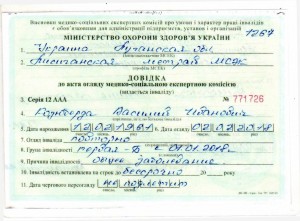 Висновки медико-соціальних експертних комісій про умови і характер праці інвалідів
є обов'язковими для адміністрації підприємств, установ і організацій
1267
МІНІСТЕРСТВО ОХОРОНИ ЗДОРОВ'Я УКРАЇНИ
1. Украина Луганская обл.
2. МСЭК
ДОВІДКА
до акта огляду медико-соціальною експертною комісією
(видається інваліду)
3. Серія 12 ААА № 771726
4. Василий Иванович
5. Дата народження 6. Дата огляду
7. Огляд повторно
8. Група інвалідності первая - Б с 01.01.2018г.
9. Причина інвалідності общее заболевание
10. Інвалідність встановлено на строк до бессрочно 20 року
11. Дата чергового переогляду не подлежит